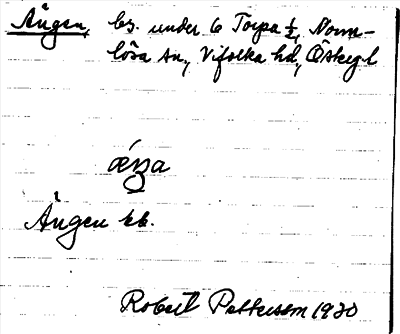 Ängen, bs. under 6 Torpa ½, Norm-
lösa sn, Vifolka hd, Östergl
æŋa
Ängen kb.
Robert Pettersson 1930